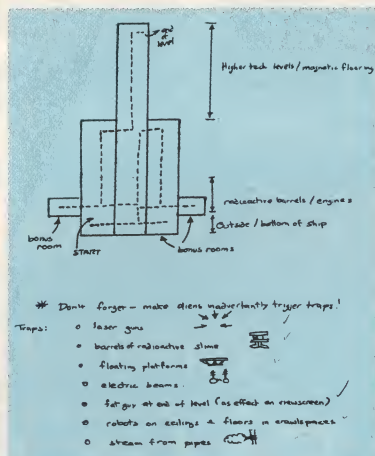 end
of
level
Higher tech levels / magnetic flooring
radioactive barrels / engines
Outside / bottom of ship
bonus
room
START
bonus rooms
* Don't forget - make aliens inadvertantly trigger traps!
Traps:
o laser guns
o barrels of radioactive slime
o floating platforms
o electric beams.
o fat guy at end of level (as effect on viewscreen)
o robots on ceilings & floors in crawlspaces
o steam from pipes